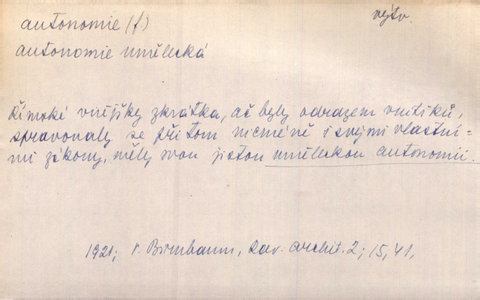 autonomie (f) výtv.
autonomie umělecká
Římské vnějšky zkrátka, ač byly odrazem vnitřků,
spravovaly se při tom nicméně i svými vlastní=
mi zákony, měly svou jistou uměleckou autonomii.
1921; V. Birnbaum, Zav. archit. 2; 15, 41,